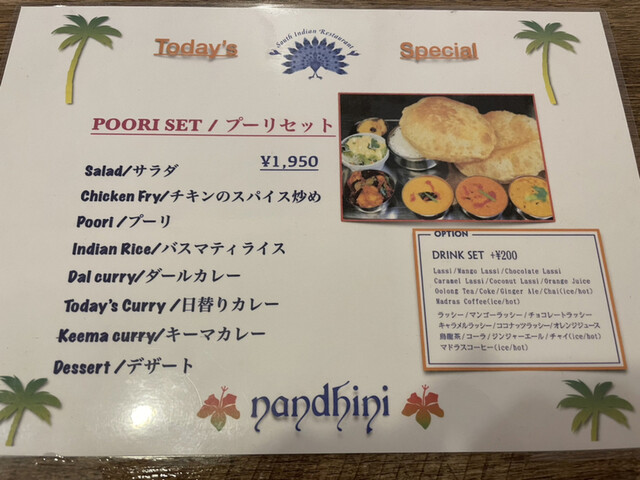 Today's
South Indian Restaurant
Special
POORI SET / プーリセット
¥1,950
Salad/サラダ
Chicken Fry/チキンのスパイス炒め
Poori /プーリ
Indian Rice/バスマティライス
Dal curry/ダールカレー
Today's Curry /日替りカレー
Keema curry/キーマカレー
Dessert /デザート
OPTION
DRINK SET +¥200
Lassi/Mangu Lassi/Chocolate Lassi
Caramel Lassi/Coconut Lassi/Orange Juice
Oolong Tea/Coke/Ginger Ale/Chai(ice/hot)
Madras Coffee(ice/hot)
ラッシー/マンゴーラッシー/チョコレートラッシー
キャラメルラッシー/ココナッツラッシー/オレンジジュース
烏龍茶/コーラ/ジンジャーエール/チャイ(ice/hot)
マドラスコーヒー(ice/hot)
nandhini